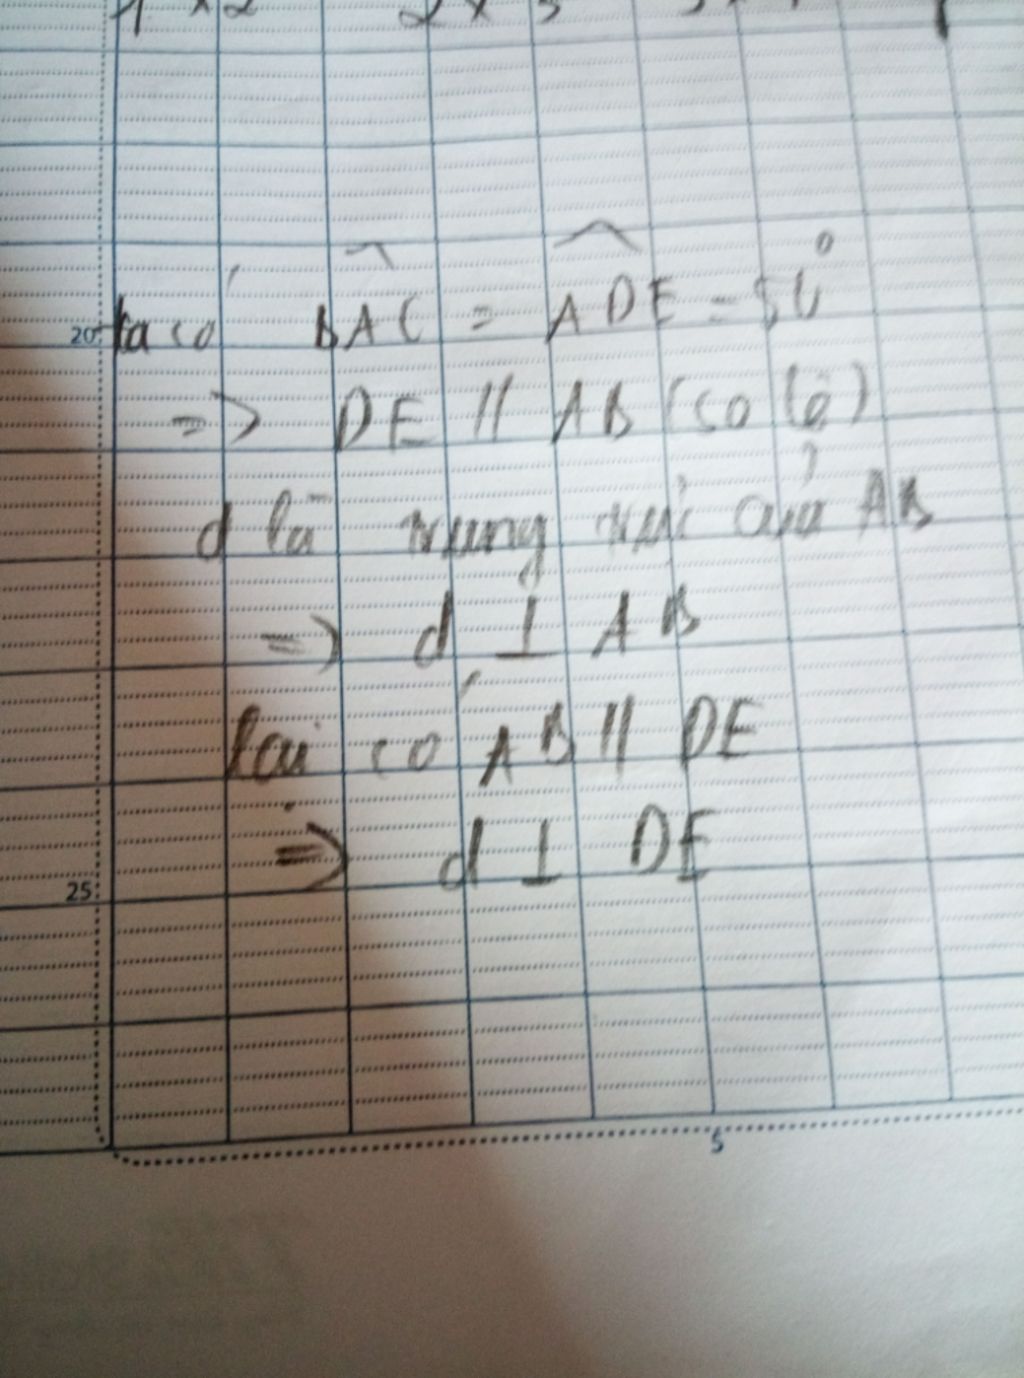 20 ta có BAC = ADE = 50°
=> DE // AB (so le)
d là trung trực của AB
=> d ⊥ AB
lại có AB // DE
=> d ⊥ DE
25
5